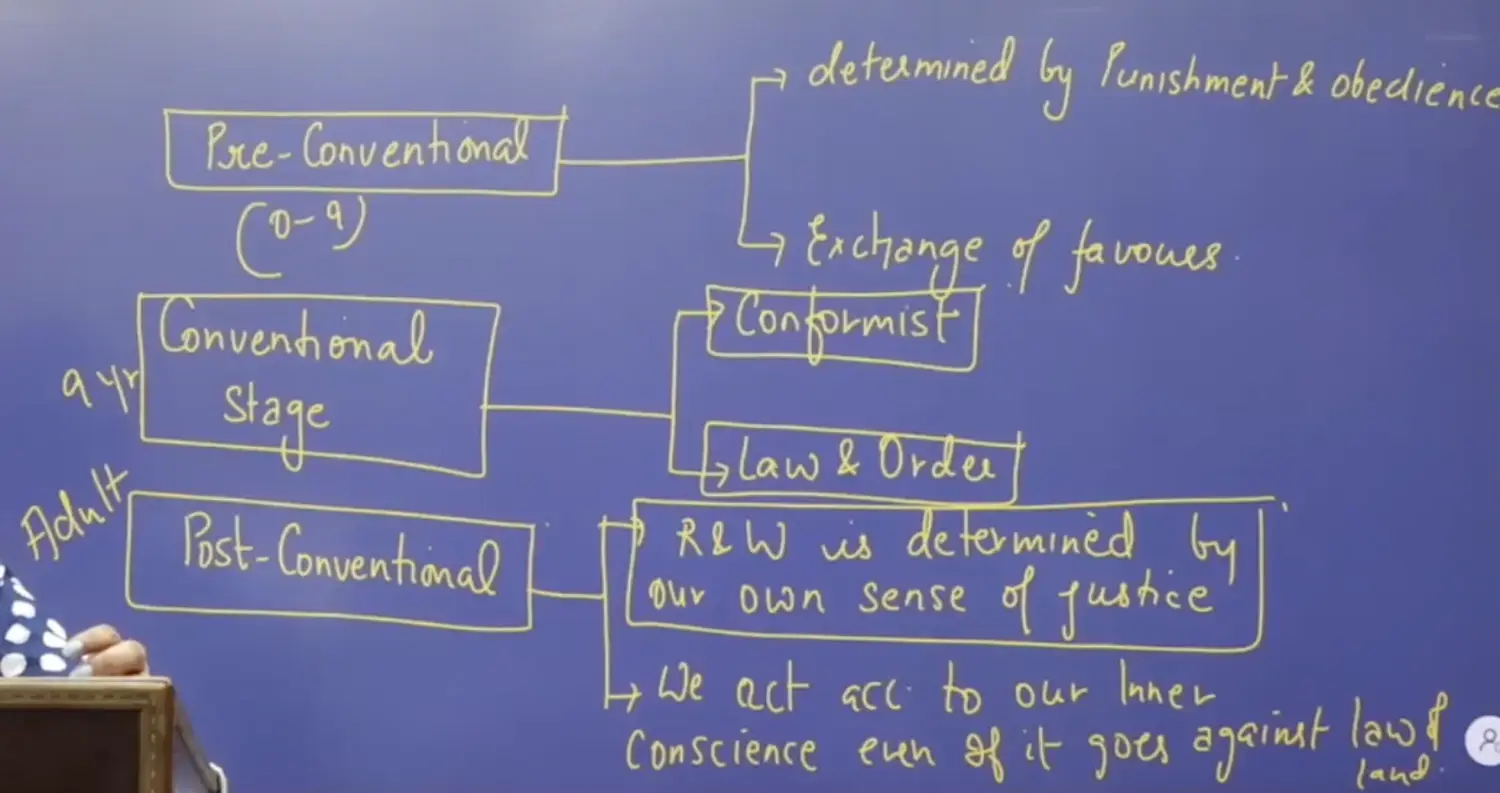 Pre-Conventional
(0-9)
determined by Punishment & obedience
Exchange of favours.
Conventional
Stage
9 yr
Conformist
Law & Order
Adult
Post-Conventional
R & W is determined by
our own sense of justice
We act acc. to our Inner
Conscience even if it goes against law of
land.